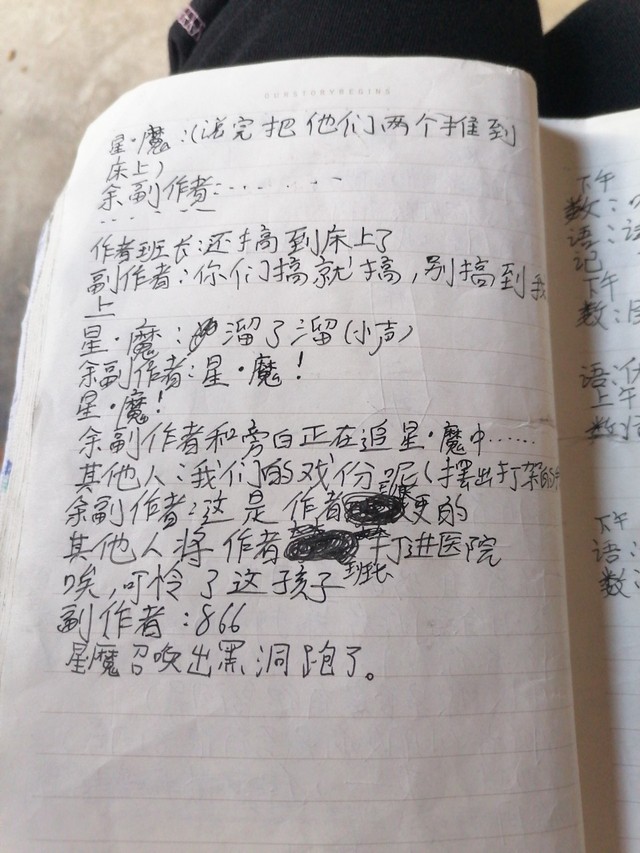 OURSTORYBEGINS
星·魔:(说完把他们两个推到
床上)
余副作者:......
......
作者班长:还搞到床上了
副作者:你们搞就搞,别搞到我
上
星·魔:溜了溜(小声)
余副作者:星·魔!
星·魔!
余副作者和旁白正在追星·魔中……
其他人:我们的戏份呢(摆出打架的
余副作者:这是作者班长要的
其他人将作者班长打进医院
唉,可怜了这孩子
副作者:866
星魔召唤出黑洞跑了。
下午
数:
语:
记
下午
数:
语:
上午
数
下午
语:
数: